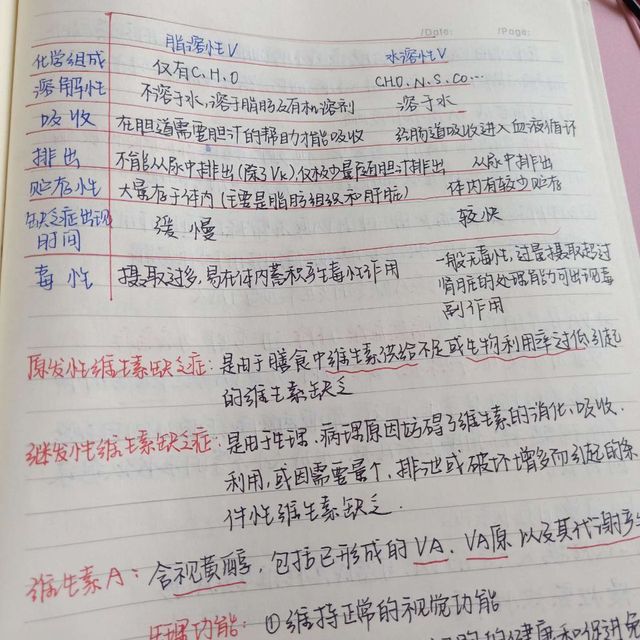 /Date: /Page:
脂溶性V 水溶性V
化学组成 仅有C.H.O CHO.N.S.Co…
溶解性 不溶于水,溶于脂肪及有机溶剂 溶于水
吸收 在胆道需要胆汁的帮助才能吸收 经肠道吸收进入血液循环
排出 不能从尿中排出(除了VK),仅极少量随胆汁排出 从尿中排出
贮存性 大量存于体内(主要是脂肪组织和肝脏) 体内有较少贮存
缺乏症出现时间 缓慢 较快
毒性 摄取过多,易在体内蓄积产生毒性作用 一般无毒性,过量摄取超过
肾脏的处理能力可出现毒
副作用
原发性维生素缺乏症:是由于膳食中维生素供给不足或生物利用率过低引起
的维生素缺乏
继发性维生素缺乏症:是由于生理、病理原因妨碍了维生素的消化、吸收、
利用,或因需要量个、排泄或破坏增多而引起的条
件性维生素缺乏.
维生素A:含视黄醇,包括已形成的VA、VA原以及其代谢产
生理功能:①维持正常的视觉功能
的健康和促进免